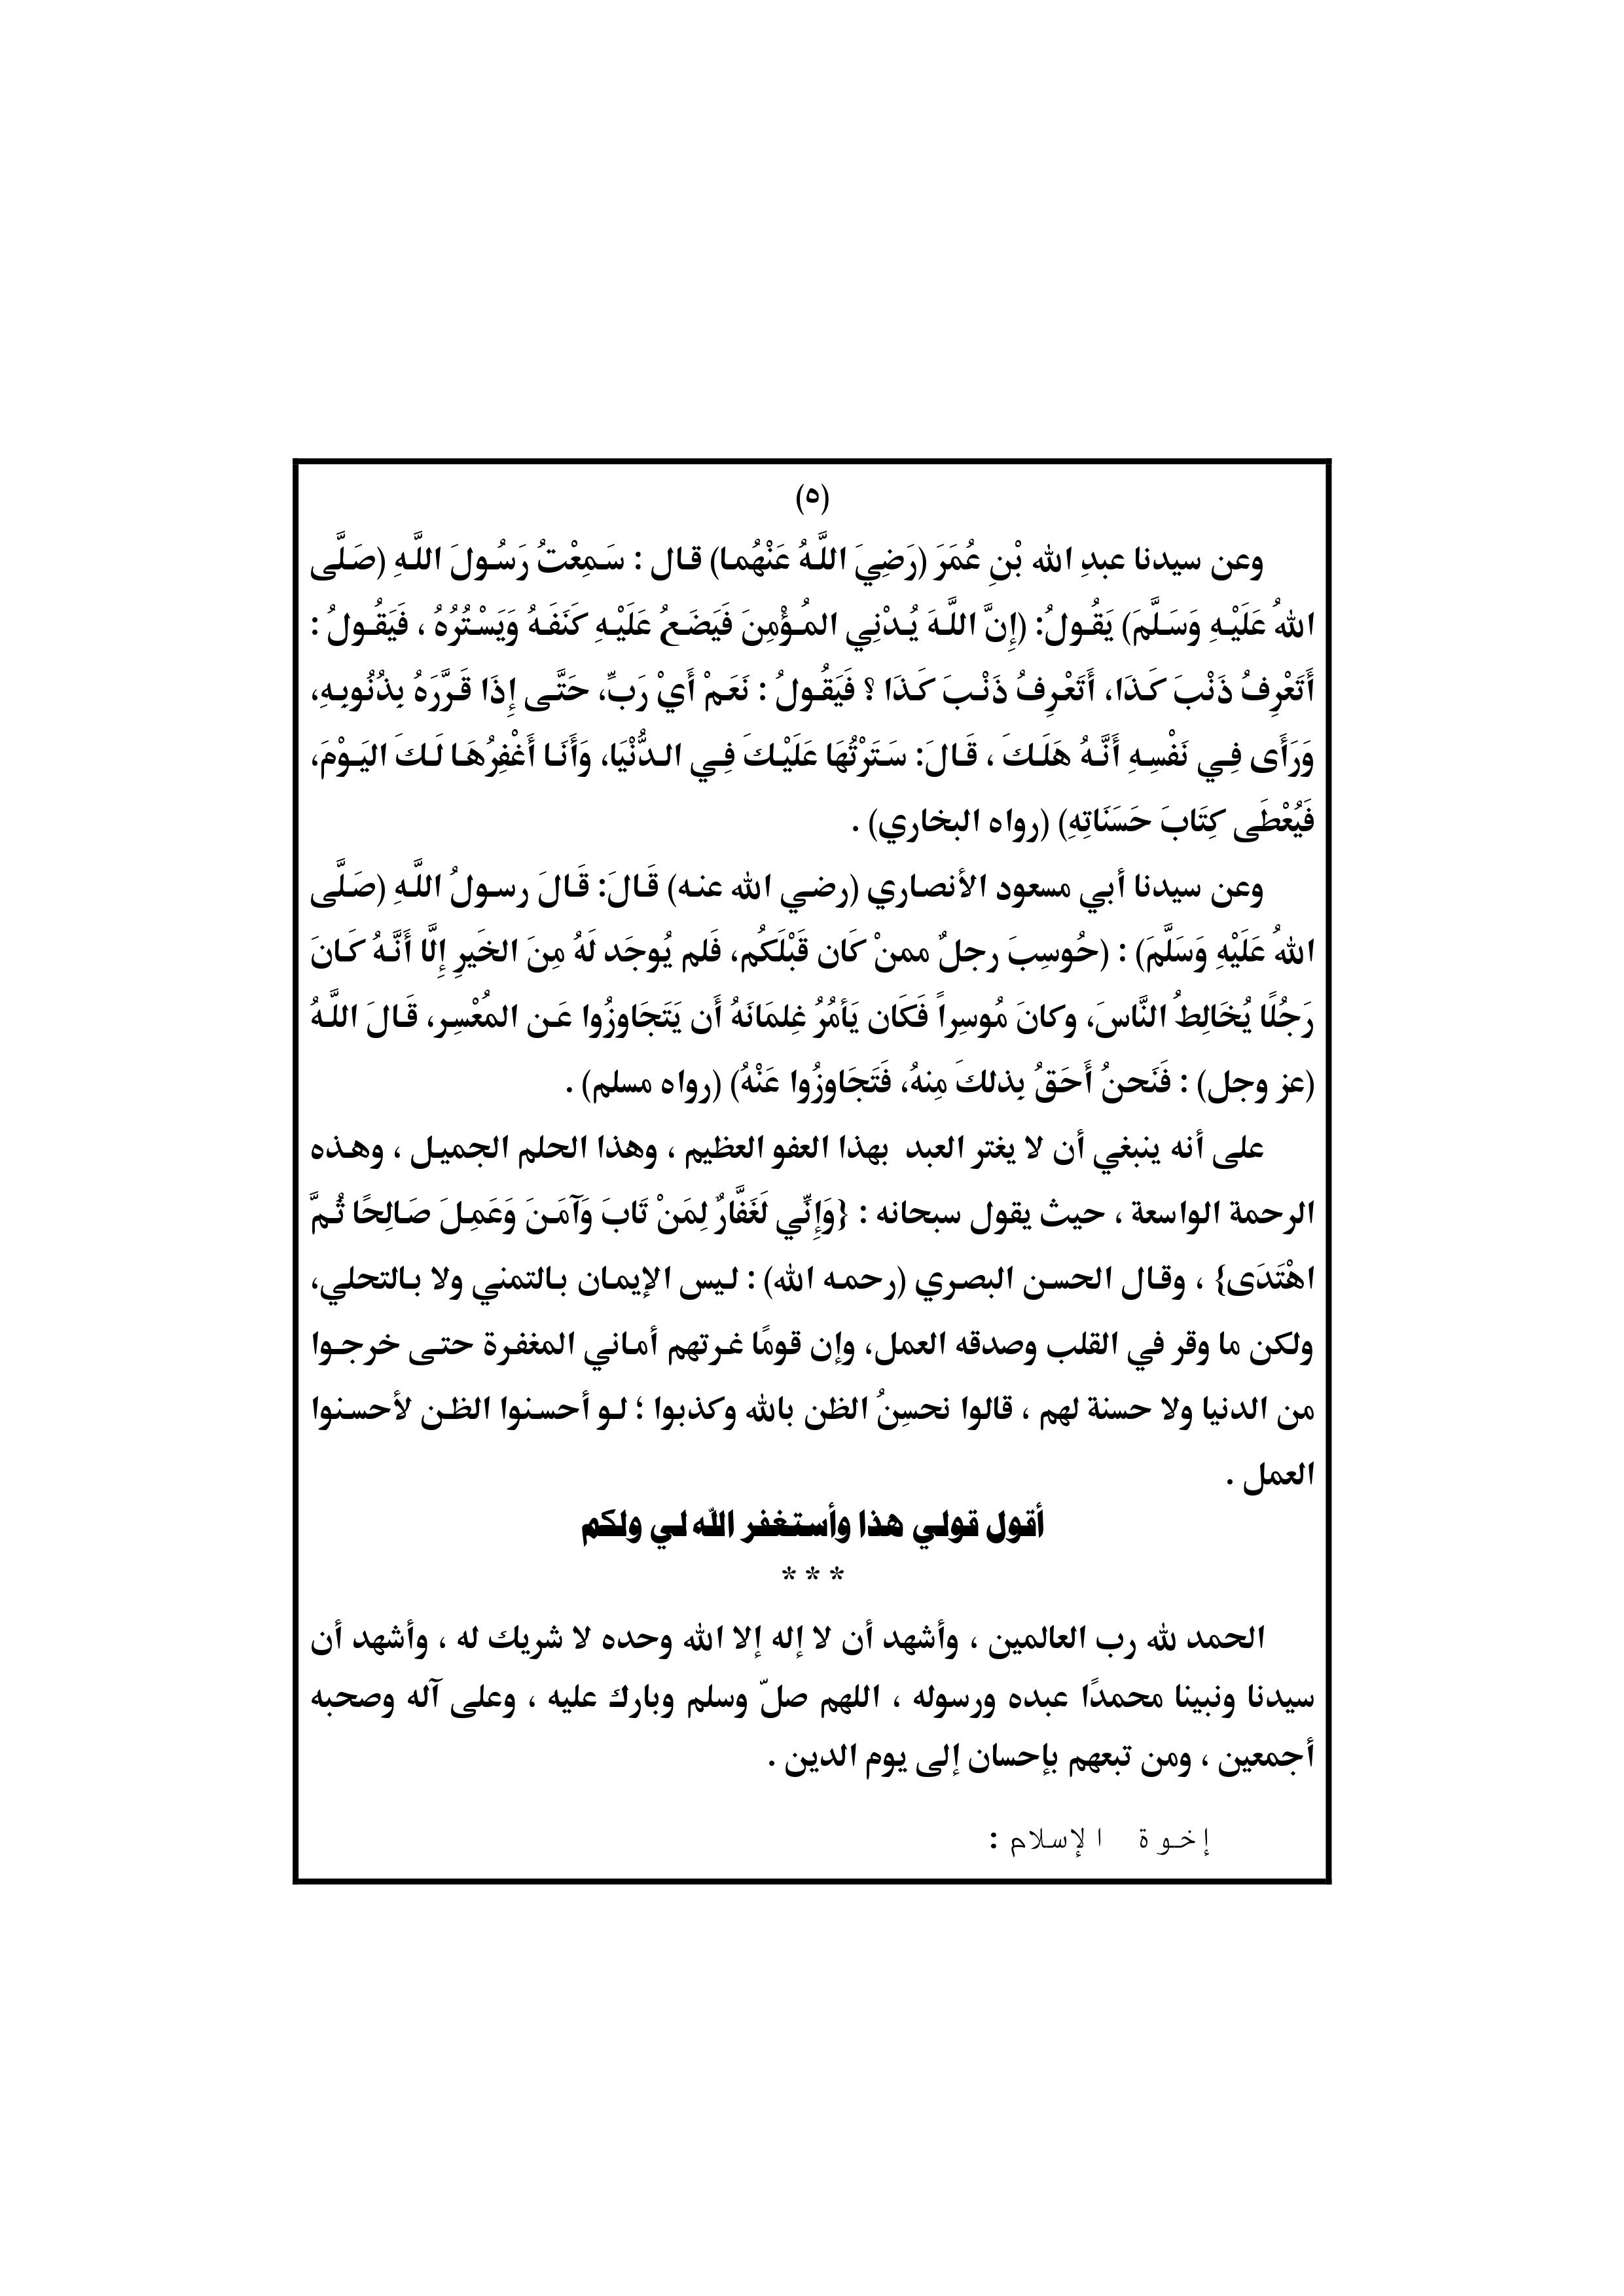 (٥)
وعن سيدنا عبدِ الله بْنِ عُمَرَ (رَضِيَ اللَّهُ عَنْهُما) قال : سَمِعْتُ رَسُولَ اللَّهِ (صَلَّى
اللهُ عَلَيْهِ وَسَلَّمَ) يَقُولُ: (إِنَّ اللَّهَ يُدْنِي المُؤْمِنَ فَيَضَعُ عَلَيْهِ كَنَفَهُ وَيَسْتُرُهُ ، فَيَقُولُ :
أَتَعْرِفُ ذَنْبَ كَذَا، أَتَعْرِفُ ذَنْبَ كَذَا ؟ فَيَقُولُ : نَعَمْ أَيْ رَبِّ، حَتَّى إِذَا قَرَّرَهُ بِذُنُوبِهِ،
وَرَأَى فِي نَفْسِهِ أَنَّهُ هَلَكَ ، قَالَ: سَتَرْتُهَا عَلَيْكَ فِي الدُّنْيَا، وَأَنَا أَغْفِرُهَا لَكَ اليَوْمَ،
فَيُعْطَى كِتَابَ حَسَنَاتِهِ) (رواه البخاري) .
وعن سيدنا أبي مسعود الأنصاري (رضي الله عنه) قَالَ: قَالَ رسولُ اللَّهِ (صَلَّى
اللهُ عَلَيْهِ وَسَلَّمَ) : (حُوسِبَ رجلٌ ممنْ كَان قَبْلَكُم، فَلم يُوجَد لَهُ مِنَ الخَيرِ إِلَّا أَنَّهُ كَانَ
رَجُلًا يُخَالِطُ النَّاسَ، وكانَ مُوسِراً فَكَان يَأمُرُ غِلمَانَهُ أَن يَتَجَاوزُوا عَن المُعْسِر، قَالَ اللَّهُ
(عز وجل) : فَنَحنُ أَحَقُ بِذلكَ مِنهُ، فَتَجَاوزُوا عَنْهُ) (رواه مسلم) .
على أنه ينبغي أن لا يغتر العبد بهذا العفو العظيم ، وهذا الحلم الجميل ، وهذه
الرحمة الواسعة ، حيث يقول سبحانه : {وَإِنِّي لَغَفَّارٌ لِمَنْ تَابَ وَآمَنَ وَعَمِلَ صَالِحًا ثُمَّ
اهْتَدَى} ، وقال الحسن البصري (رحمه الله) : ليس الإيمان بالتمني ولا بالتحلي،
ولكن ما وقر في القلب وصدقه العمل، وإن قومًا غرتهم أماني المغفرة حتى خرجوا
من الدنيا ولا حسنة لهم ، قالوا نحسِنُ الظن بالله وكذبوا ؛ لو أحسنوا الظن لأحسنوا
العمل .
أقول قولي هذا وأستغفر الله لي ولكم
* * *
الحمد لله رب العالمين ، وأشهد أن لا إله إلا الله وحده لا شريك له ، وأشهد أن
سيدنا ونبينا محمدًا عبده ورسوله ، اللهم صلّ وسلم وبارك عليه ، وعلى آله وصحبه
أجمعين ، ومن تبعهم بإحسان إلى يوم الدين .
إخوة الإسلام :